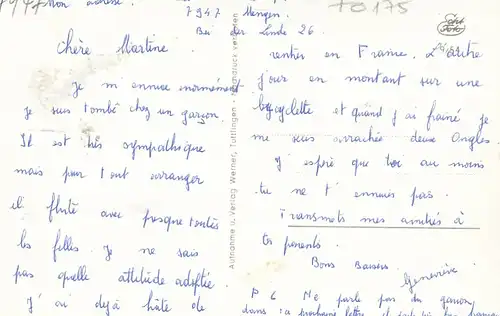 mon adresse.
7947 Mengen.
Bei der Linde 26
TO175
Echt Foto
Chère Martine.
Je m ennuie enormément
je suis tombé chez un garçon.
Il est très sympathique
mais pour tout arranger
il flirte avec presque toutes
les filles. Je ne sais
pas quelle attitude adoptée
J'ai dejà hâte de
rentrer en France. L'autre
jour en montant sur une
bycyclette et quand j'ai frainé je
me suis arrachée deux ongles.
J'espère que toi au moins
tu ne t'ennuies pas.
Transmets mes amitiés à
tes parents.
Bons Baisers
Geneviève.
PS Ne parle pas du garçon
dans ta prochaine lettre
Aufnahme u. Verlag Werner, Tuttlingen - Nachdruck verboten